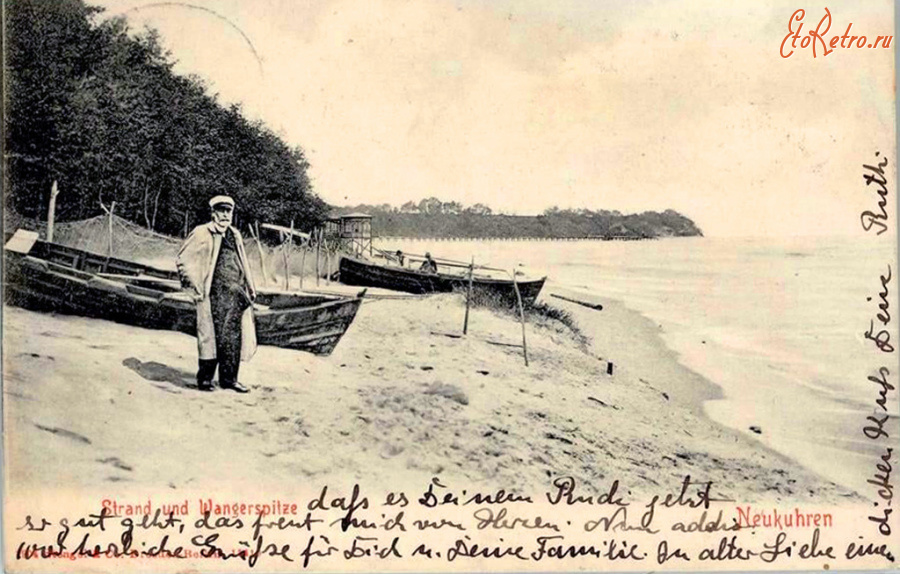 EtoRetro.ru
Strand und Wangerspitze
Neukuhren
daß es Deinem Rudi jetzt
so gut geht, das freut mich von Herzen. Nun addio
und herzliche Grüße für Dich u. Deine Familie. In alter Liebe einen
dicken Kuß Deine Ruth.